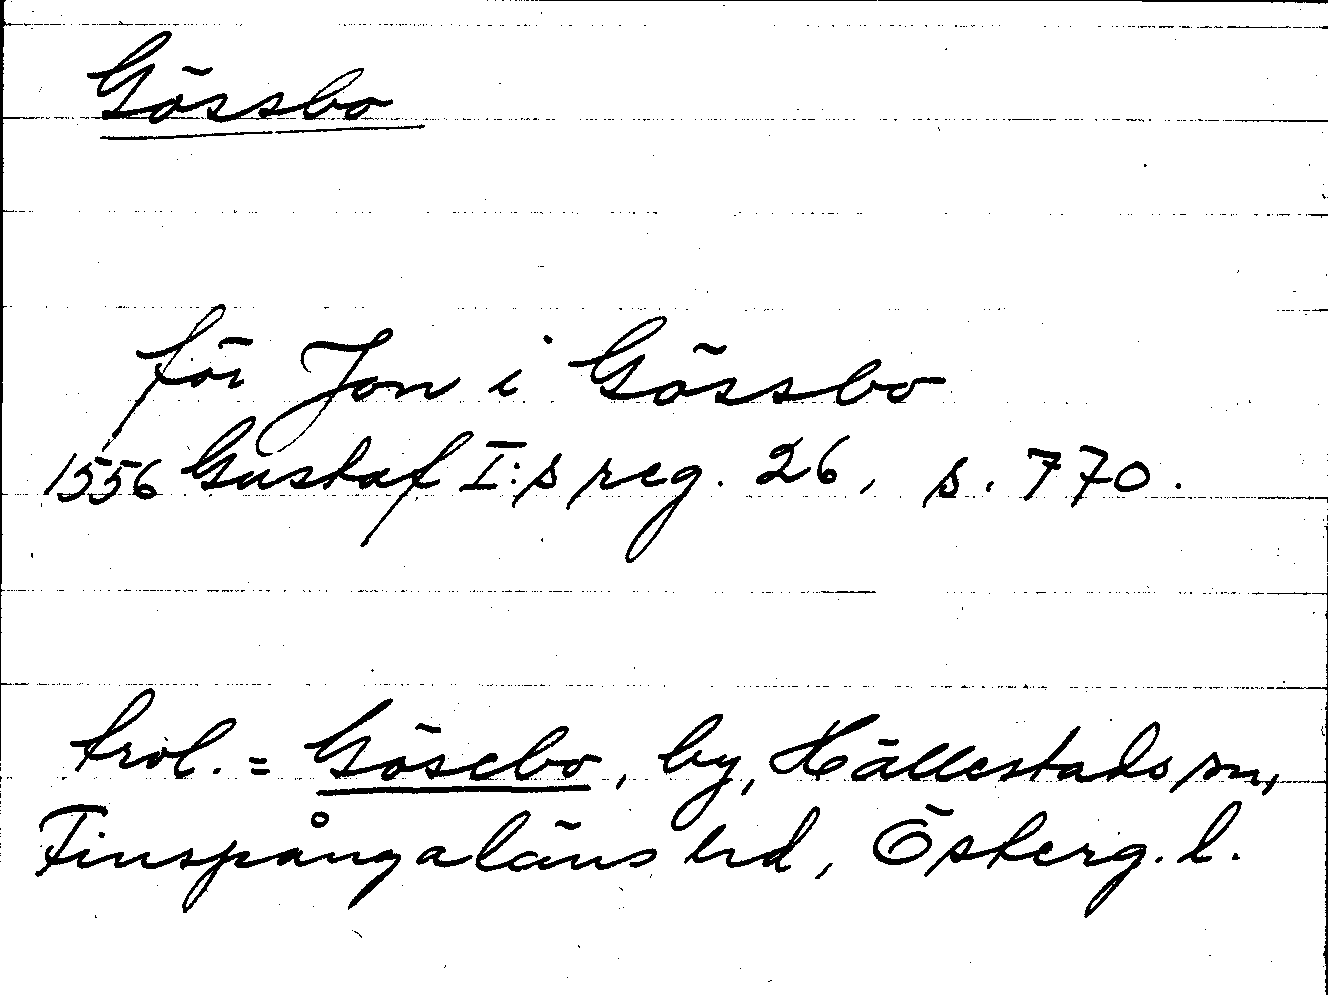 Gössbo
för Jon i Gössbo
1556 Gustaf I:s reg. 26, s. 770.
trol. = Gösebo, by, Hällestads sn,
Finspångaläns hd, Österg. l.